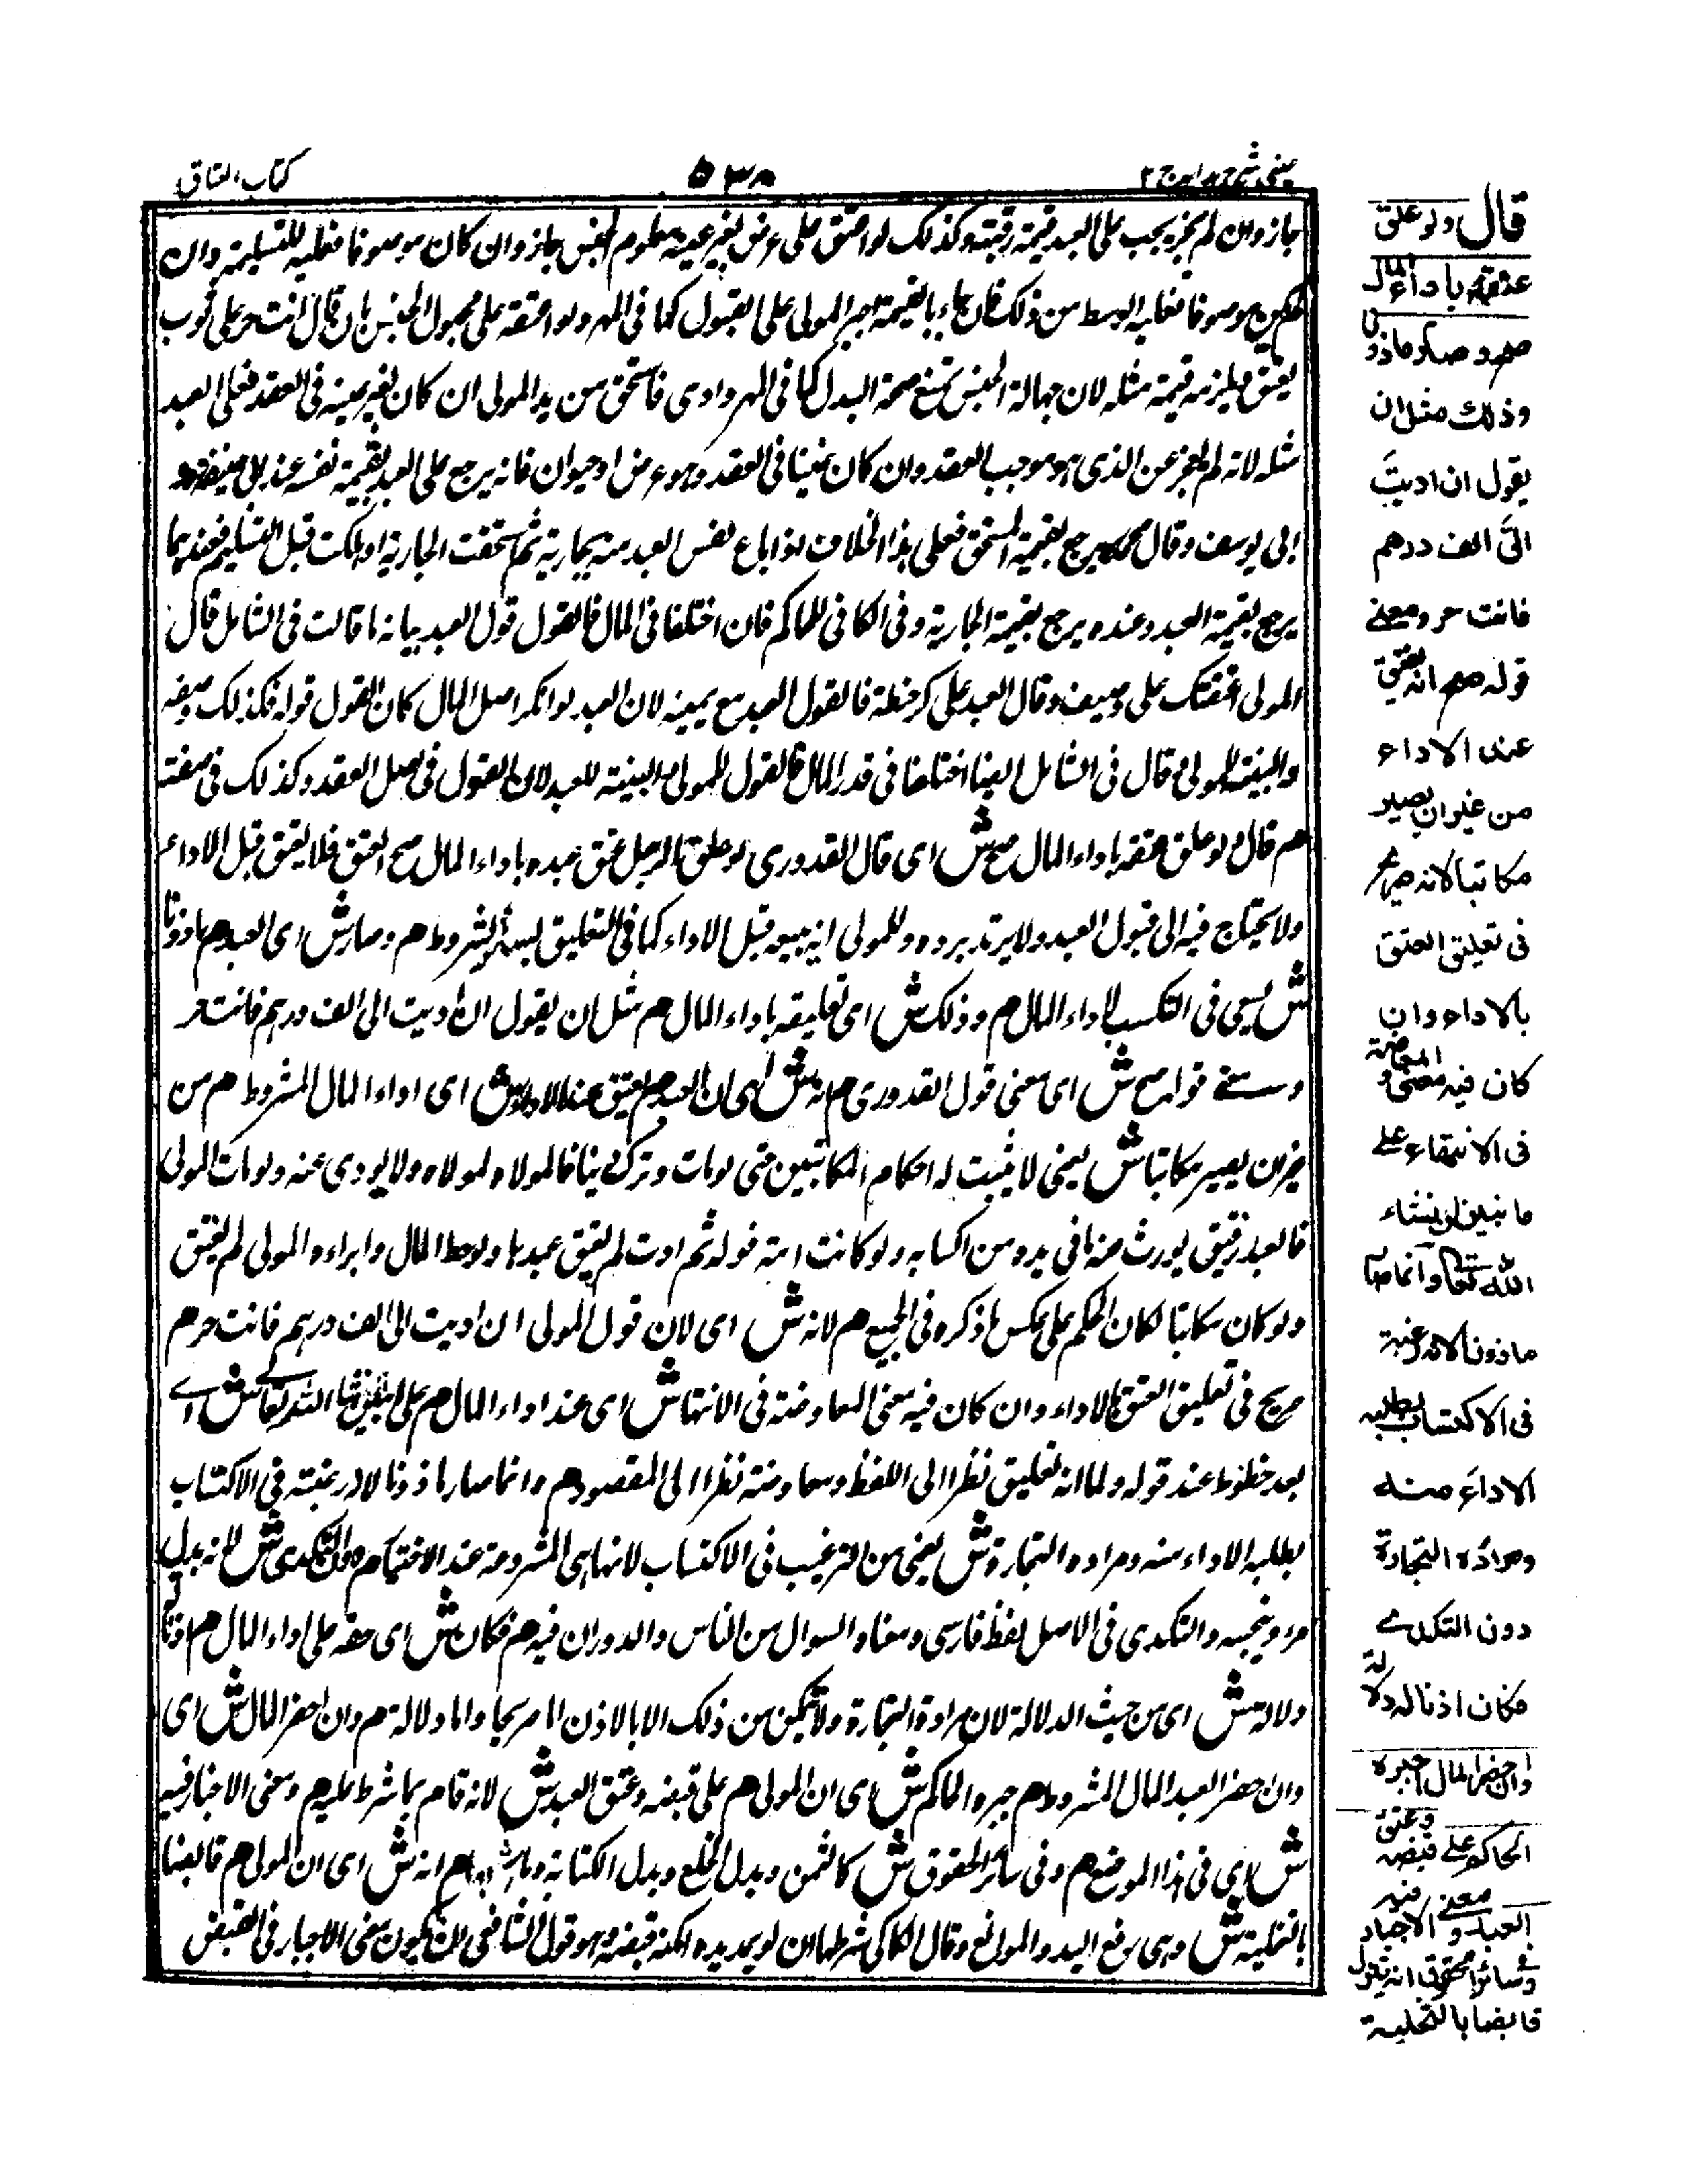 عینی شرح هدایه ج ۲
۵۳۸
کتاب العتاق
جاز وان لم یجز یجب علی العبد قیمة رقبته وکذلک لو اعتق علی عرض بغیر عینه معلوم الجنس جاز وان کان موصوفا فعلیه تسلیمه وان
لم یکن موصوفا فعلیه الوسط من ذلک فان جاء بالقیمة اجبر المولی علی القبول کما فی المهر ولو اعتقه علی مجهول الجنس بان قال انت حر علی ثوب
یعتق ویلزمه قیمة مثله لان جهالة الجنس تمنع صحة البدل کما فی المهر وادی فاستحق من ید المولی ان کان بغیر عینه فی العقد فعلی العبد
مثله لانه لم یعجز عن الذی هو موجب العقد وان کان معینا فی العقد وهو عرض او حیوان فانه یرجع علی العبد بقیمة نفسه عند ابی حنیفة و
ابی یوسف وقال محمد یرجع بقیمة المستحق فعلی هذا الخلاف اذا باع نفس العبد منه بجاریة ثم استحقت الجاریة او هلکت قبل التسلیم فعندهما
یرجع بقیمة العبد وعنده یرجع بقیمة الجاریة وفی الکافی للحاکم فان اختلفا فی المال فالقول قول العبد بیانه ما قالت فی الشامل قال
المولی اعتقتک علی وصیف وقال العبد علی کر حنطة فالقول للعبد مع یمینه لان العبد لو انکر اصل المال کان القول قوله فکذلک وصفه
والبینة للمولی وقال فی الشامل ایضا اختلفا فی قدر المال فالقول للمولی والبینة للعبد لان القول فی اصل العقد وکذلک فی صفته
هم قال ولو علق عتقه باداء المال صح ش ای قال القدوری لو علق الرجل عتق عبده باداء المال صح العتق فلا یعتق قبل الاداء
ولا یحتاج فیه الی قبول العبد ولا یرتد برده وللمولی ان یبیعه قبل الاداء کما فی التعلیق بسائر الشروط هم وصار ش ای العبد هم ماذونا
ش یسعی فی التکسب لاداء المال هم وذلک ش ای تعلیقه باداء المال هم مثل ان یقول ان ادیت الی الف درهم فانت حر
ومعنے قوله صح ش ای معنی قول القدوری هم انه ش ای ان العبد هم یعتق عند الاداء ش ای اداء المال المشروط هم من
غیر ان یصیر مکاتبا ش یعنی لا یثبت له احکام المکاتبین حتی لو مات وترک مالا فالمولاه ولا یؤدی عنه ولو مات المولی
فالعبد رقیق یورث عنه ما فی یده من اکسابه ولو کانت امة فولدت ثم ادت لم یعتق ولدها ولو حط المال وابراه المولی لم یعتق
ولو کان مکاتبا لکان الحکم علی عکس ما ذکره فی الجمیع هم لانه ش ای لان قول المولی ان ادیت الی الف درهم فانت حر هم
صریح فی تعلیق العتق بالاداء وان کان فیه معنی المعاوضة فی الانتها ش ای عند اداء المال هم علی ما نبین ان شاء الله تعالی ش اے
بعد خطوط عند قوله ولما انه تعلیق نظرا الی اللفظ ومعاوضة نظرا الی المقصود هم وانما صار ماذونا لانه رغبته فی الاکتساب
بطلبه الاداء منه ومراده التجارة ش یعنی من الترغیب فی الاکتساب لانها هی المشروعة عند الاختیار هم دون التکدی ش لانه یذل
المرء ویخیبه والتکدی فی الاصل لفظ فارسی ومعناه السوال من الناس والدوران فیه هم فکان ش ای حثه علی اداء المال هم اذنا له
دلالة ش ای من حیث الدلالة لان مراده التجارة ولا یتمکن من ذلک الا بالاذن اما صریحا واما دلالة هم وان احضر المال ش ای
وان احضر العبد المال المشروط هم جبره الحاکم ش ای ان المولی هم علی قبضه وعتق العبد ش لانه قام بما شرط علیه هم ومعنی الاجبار فیه
ش ای فی هذا الموضع هم وفی سائر الحقوق ش کالثمن وبدل الخلع وبدل الکتابة هم انه ش ای ان المولی هم قابضا
بالتخلیة ش وهی رفع الید والموانع وقال الکاکی شرطها ان لو مد یده امکنه قبضه وهو قول الشافعی لان یکون معنی الاجبار فی القبض
قال ولو علق
عتقه باداء المال
صح وصار ماذونا
وذلك مثل ان
یقول ان ادیت
الیّ الف درهم
فانت حر ومعنے
قوله صح انه یعتق
عند الاداء
من غیر ان یصیر
مکاتبا لانه صریح
فی تعلیق العتق
بالاداء وان
کان فیه معنی المعاوضة
فی الانتهاء علے
ما نبین ان شاء
الله تعالی وانما صار
ماذونا لانه رغبة
فی الاکتساب بطلبه
الاداء منه
ومراده التجارة
دون التکدے
فکان اذنا له دلالة
وان احضر المال اجبره
الحاکم علی قبضه وعتق
العبد ومعنے الاجبار فیه
وفی سائر الحقوق انه ینزل
قابضا بالتخلیة